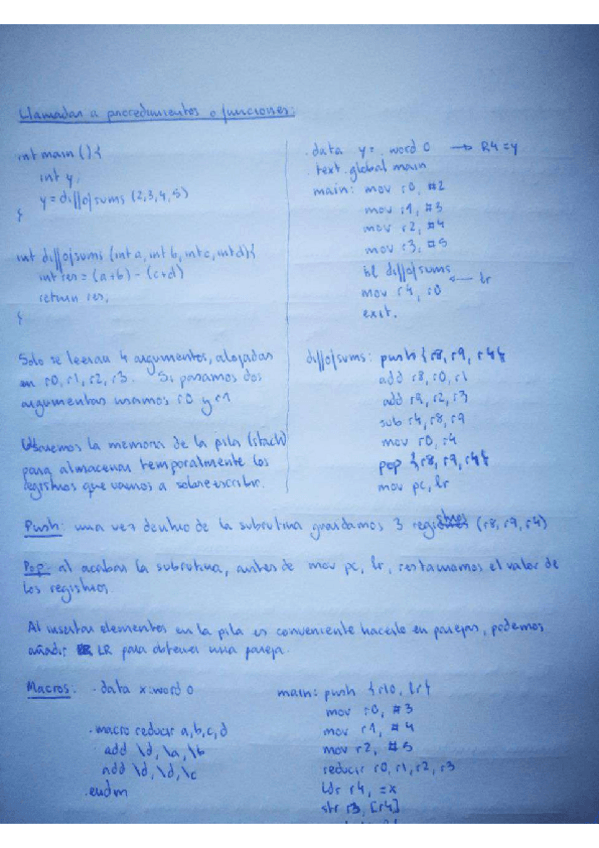 Llamadas a procedimientos o funciones:
int main () {
int y,
y = diffofsums (2,3,4,5)
}
int diffofsums (int a, int b, int c, int d){
int res = (a+b) - (c+d)
return res,
}
Solo se leeran 4 argumentos, alojados
en r0, r1, r2, r3. Si pasamos dos
argumentos usamos r0 y r1
Usaremos la memoria de la pila (stack)
para almacenar temporalmente los
registros que vamos a sobreescribir.
.data y= .word 0 → R4=y
.text .global main
main: mov r0, #2
mov r1, #3
mov r2, #4
mov r3, #5
bl diffofsums
mov r4, r0 ← lr
exit.
diffofsums: push {r8, r9, r4}
add r8, r0, r1
add r9, r2, r3
sub r4, r8, r9
mov r0, r4
pop {r8, r9, r4}
mov pc, lr
Push: una vez dentro de la subrutina guardamos 3 registros (r8, r9, r4)
Pop: al acabar la subrutina, antes de mov pc, lr, restauramos el valor de
los registros
Al insertar elementos en la pila es conveniente hacerlo en parejas, podemos
añadir LR para obtener una pareja.
Macros: .data x: word 0
.macro reducir a,b,c,d
add \d, \a, \b
add \d, \d, \c
.endm
main: push {r10, lr}
mov r0, #3
mov r1, #4
mov r2, #5
reducir r0, r1, r2, r3
ldr r4, =x
str r3, [r4]